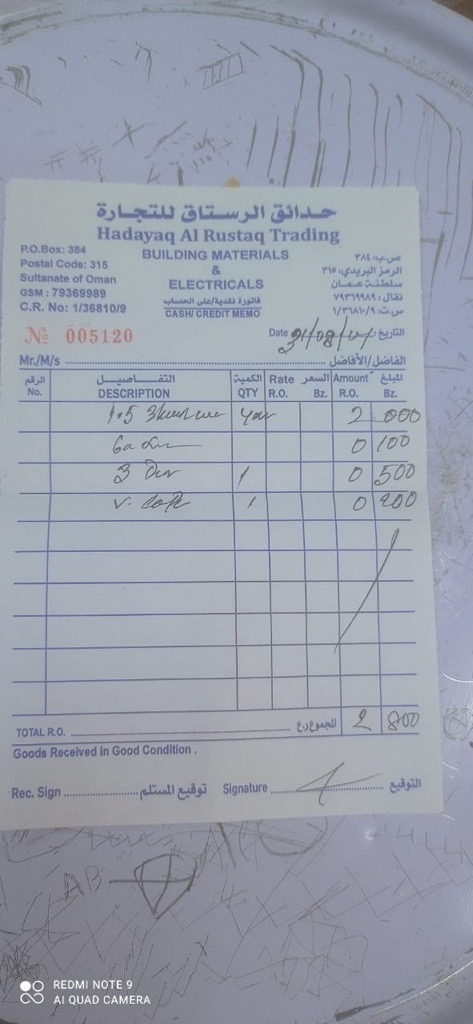 حدائق الرستاق للتجارة
Hadayaq Al Rustaq Trading
P.O.Box: 384
Postal Code: 315
Sultanate of Oman
GSM : 79369989
C.R. No: 1/36810/9
BUILDING MATERIALS
&
ELECTRICALS
فاتورة نقدية/على الحساب
CASH/ CREDIT MEMO
ص.ب: ٣٨٤
الرمز البريدي: ٣١٥
سلطنة عمان
نقال: ٧٩٣٦٩٩٨٩
س.ت: ١/٣٦٨١٠/٩
№ 005120
Date التاريخ
Mr./M/s الفاضل/الأفاضل
الرقم التفاصيل الكمية Rate السعر Amount المبلغ
No. DESCRIPTION QTY R.O. Bz. R.O. Bz.
1.5 2 000
0 100
3 1 0 500
0 200
TOTAL R.O. المجموع ر.ع 2 800
Goods Received in Good Condition .
Rec. Sign توقيع المستلم Signature التوقيع
AB
REDMI NOTE 9
AI QUAD CAMERA